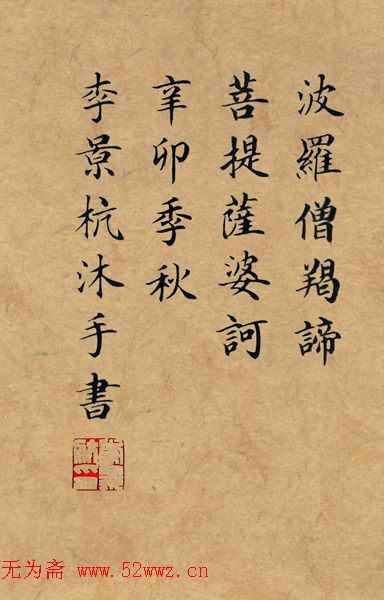 波羅僧羯諦
菩提薩婆訶
辛卯季秋
李景杭沐手書
无为斋 www.52wwz.cn